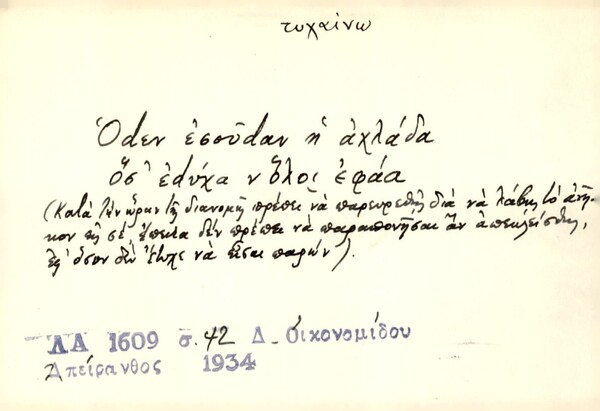 τυχαίνω
Ὅdεν ἐσοῦdαν ἡ ἀχλάδα
ὅσ' ἐdύχα ν ὅλοι ἐφάα
(Κατὰ τὴν ὥραν τῆς διανομῆς πρέπει νὰ παρευρεθῇς διὰ νὰ λάβῃς τὸ ἀνῆ-
κον εἰς σέ, ἔπειτα δὲν πρέπει νὰ παραπονῆσαι ἂν ἀπεκλείσθης,
ἐφ' ὅσον δὲν ἔτυχε νὰ εἶσαι παρών).
ΛΑ 1609 σ. 42 Δ. Οἰκονομίδου
Ἀπείρανθος 1934